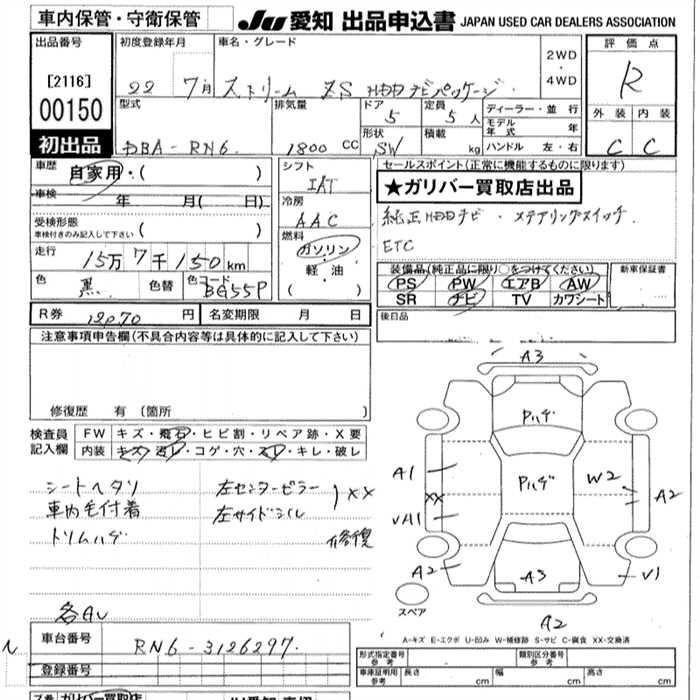 車内保管・守衛保管
JU 愛知 出品申込書 JAPAN USED CAR DEALERS ASSOCIATION
出品番号
[2116]
00150
初出品
初度登録年月
22 7月
車名・グレード
ストリーム ZS HDDナビパッケージ
2WD
・
4WD
評価点
R
外装 内装
C C
型式
DBA-RN6
排気量
1800 CC
ドア
5
定員
5 人
形状
SW
積載
kg
ディーラー・並行
モデル年式 年
ハンドル 左・右
車歴
自家用・( )
車検
年 月( 日)
受検形態
車検付きのみ記入して下さい
( )
走行
15万7千150km
色
黒
色替
色コード
BG55P
シフト
IAT
冷房
AAC
燃料
ガソリン
・
軽・油
( )
セールスポイント(正常に機能するものに限ります)
★ガリバー買取店出品
純正HDDナビ・ステアリングスイッチ
ETC
装備品(純正品に限り○をつけてください)
PS PW エアB AW
SR ナビ TV カワシート
新車保証書
後日品
R券 12070 円
名変期限 月 日
注意事項申告欄(不具合内容等は具体的に記入して下さい)
修復歴 有(箇所 )
検査員記入欄
FW キズ・飛石・ヒビ割・リペア跡・X要
内装 キズ・汚レ・コゲ・穴・スレ・キレ・破レ
シートヘタリ
車内毛付着
トリムハゲ
左センターピラー
左サイドシル
XX
修復
各AU
A3
Pハゲ
Pハゲ
A1
XX
VA1
A2
W2
A2
A3
V1
スペア
A2
A-キズ E-エクボ U-凹み W-補修跡 S-サビ C-腐食 XX-交換済
車台番号
RN6-3126297
登録番号
形式指定番号
参考
類別区分番号
参考
車庫証明用
参考
長さ cm 幅 cm 高さ cm
ガリバー買取店